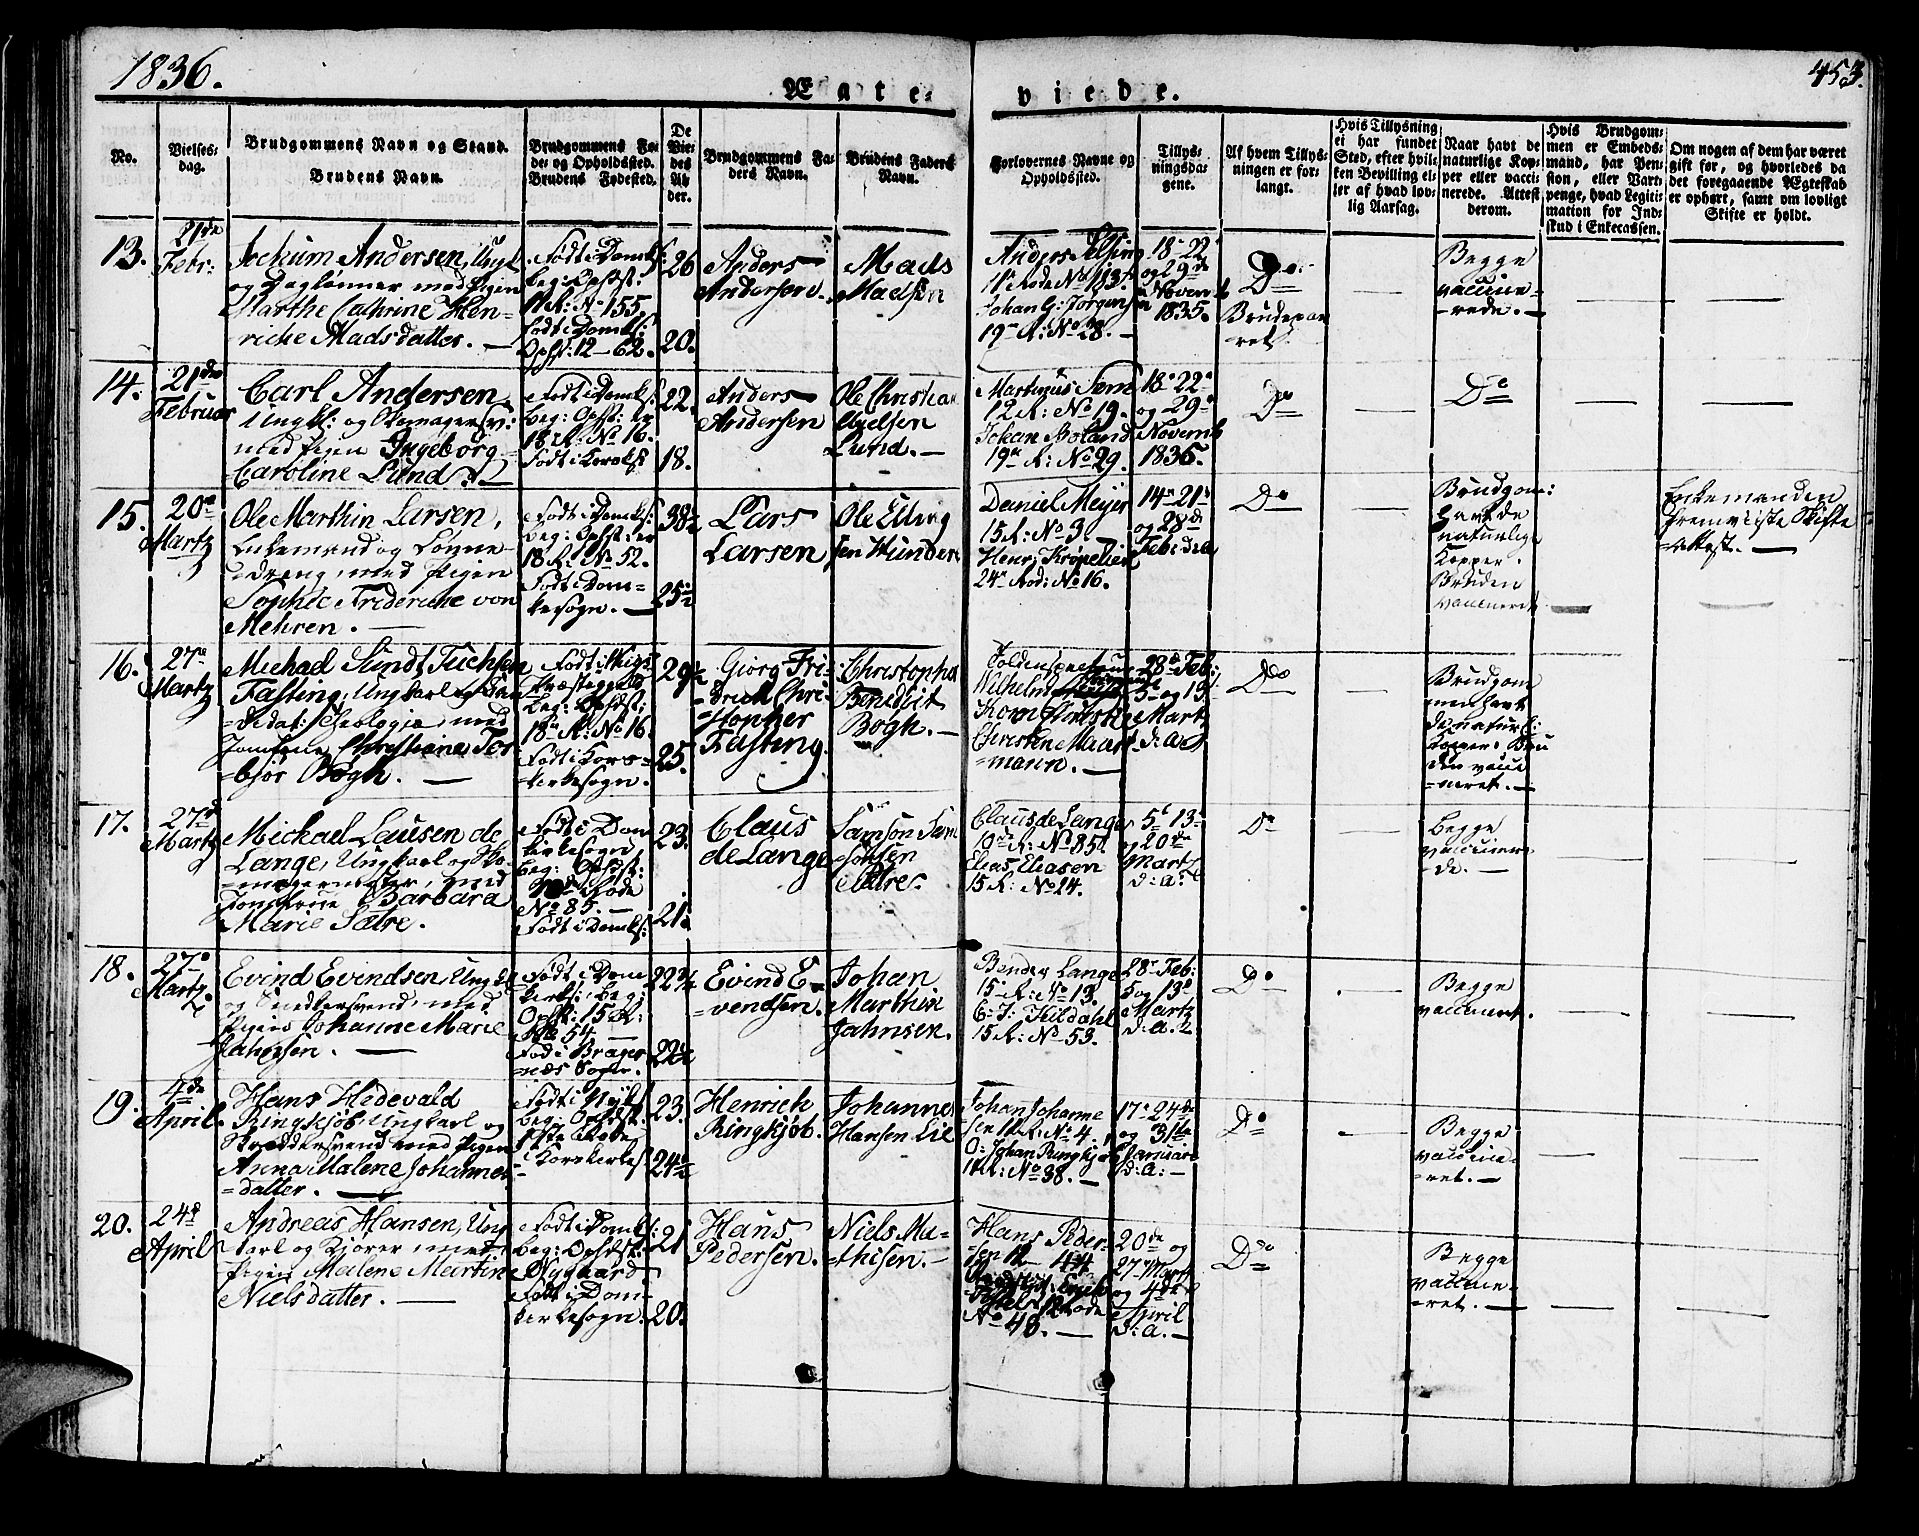 1836.
453.
Æ g t e-
v i e d e.
No.
Vielses-
dag.
Brudgommens Navn og Stand.
Brudens Navn.
Brudgommens Fø-
de- og Opholdssted.
Brudens Fødested.
De
Vie-
des
Al-
der.
Brudgommens Fa-
ders Navn.
Brudens Faders
Navn.
Forlovernes Navne og
Opholdssted.
Tillys-
ningsda-
gene.
Af hvem Tillys-
ningen er for-
langt.
Hvis Tillysning
ei har fundet
Sted, efter hvil-
ken Bevilling el-
ler af hvad lov-
lig Aarsag.
Naar havt de
naturlige Kop-
per eller vacci-
nerede. Attest
derom.
Hvis Brudgom-
men er Embeds-
mand, har Pen-
sion, eller Vart-
penge, hvad Legiti-
mation for Ind-
skud i Enkecassen.
Om nogen af dem har været
gift før, og hvorledes da
det foregaaende Ægteskab
er ophørt, samt om lovligt
Skifte er holdt.
13.
21de
Febr:
Jochum Andersen, Ungk.
og Daglønner med Pigen
Marthe Cathrine Hen-
riche Madsdatter. —
Født i Domks:
beg: Ophst:
11 R: No 155.
Født i Domks:
Ophst: 12 — 62.
26
20.
Anders
Andersen.
Mads
Madsen
Anders Helsing
11 Rode No 113.
Johan G: Jørgensen
19 R: No 28. —
18- 22-
og 29de
Novemb
1835.
Do
Brudepar
ret.
Begge
vaccine-
rede. —
14.
21de
Februar
Carl Andersen
Ungk: og Skomagersv:
med Pigen Ingeborg
Caroline Lund. —
Født i Domks:
beg: Ophst: er
18 R: No 16.
Født i Korsks:
22.
18.
Anders
Andersen
Ole Christian
Lund. —
Martinus Sem
12 R: No 19.
Johan Boland
19 R: No 29.
18- 22-
og 29-
Novemb
1835.
Do
Do
15.
20de
Martz
Ole Marthin Larsen,
Enkemand og Tønne-
dreng, med Pigen
Sophie Frideriche von
Mehren. —
Født i Domks:
beg: Ophst: er
18 R: No 52.
Født i Dom-
kesogn. —
38½
25½
Lars
Larsen
Daniel Meyer
15 R: No 3. —
Henr: Krøpelien
24 Rod: No 16.
14- 21-
og 28de
Feb: d:a:
Do
Brudgom:
havt de
naturlige
Kopper.
Bruden
vaccineret
Enkemanden
fremviiste Skifte
Attest. —
16.
27de
Martz
Michael Sundt Tuchsen
Fasting, Ungkarl og Can
didat: Theologiæ, med
Jomfrue Christiane Tor
biør Bøgh. —
beg: Ophdst:
18 R: No 16.
Født i Kors-
kirkesogn.
29½
25.
Giorg Fri-
drich Chri-
stopher
Fasting.
Christopher
Bendixt
Bøgh. —
Wilhelm
Christen Maart
mann. —
28de Feb:
5- og 13
Martz
d:a:
Do
Brudgom
men havt
de naturl:
Kopper. Bru
den vacci
neret. —
17.
27de
Martz
Michael Lausen de
Lange, Ungkarl og Sko-
magermester, med
Jomfrue Barbara
Marie Sætre.
Født i Dom
kirkesogn
beg: Ophst:
10de Rode
No 85. —
Født i Domks:
23.
21.
Claus
de Lange
Samson Sam
sonsen
Sætre.
Claus de Lange
10de R: No 85.
Elias Eliasen
15 R: No 24.
5- 13-
og 20de
Martz
d:a:
Do
Begge
vaccinere
de. —
18.
27de
Martz.
Evind Evindsen, Ungk:
og Snedkersvend, med
Pigen Johanne Marie
Jahnsen. —
Født i Dom
kirks: beg:
Ophst: 15 R:
No 54 —
Fød i Brager
næs Sogn.
22¾
22½
Evind E-
vendsen.
Johan
Marthin
Jahnsen.
Bender Lange
15 R: No 13.
C: J: Kildahl
15 R: No 53.
28- Feb:
5 og 13de
Martz
d:a:
Do
Begge
vaccineret.
19.
4de
April.
Hans Hedevald
Ringkjøb, Ungkarl og
Skræddersvend med Pigen
Anna Malene Johannes-
datter. —
Født i Nyks:
beg: Ophdst:
Rode
i Korskirkes
23.
24½
Henrich
Ringkjøb.
Johannes
Hansen Lie
Johan Johanne
sen 11 R: No 4.
O: Johan Ringkjøb
11 R: No 38. —
17- 24de
og 31te
Januari
d:a: —
Do
Begge
vaccine-
ret. —
20.
24de
April
Andreas Hansen, Ung
karl og Kjører med
Pigen Malene Martine
Nielsdatter. —
Født i Domks:
beg: Ophdst:
Nygaard
Født i Dom-
kirkesogn.
21
20.
Hans
Pedersen.
Niels Ma-
thisen. —
Hans Peder-
sen 12 — 44
Rode
No 48. —
20de og
27- Martz
og 4de
April
d:a. —
Do
Begge
vaccine-
ret. —